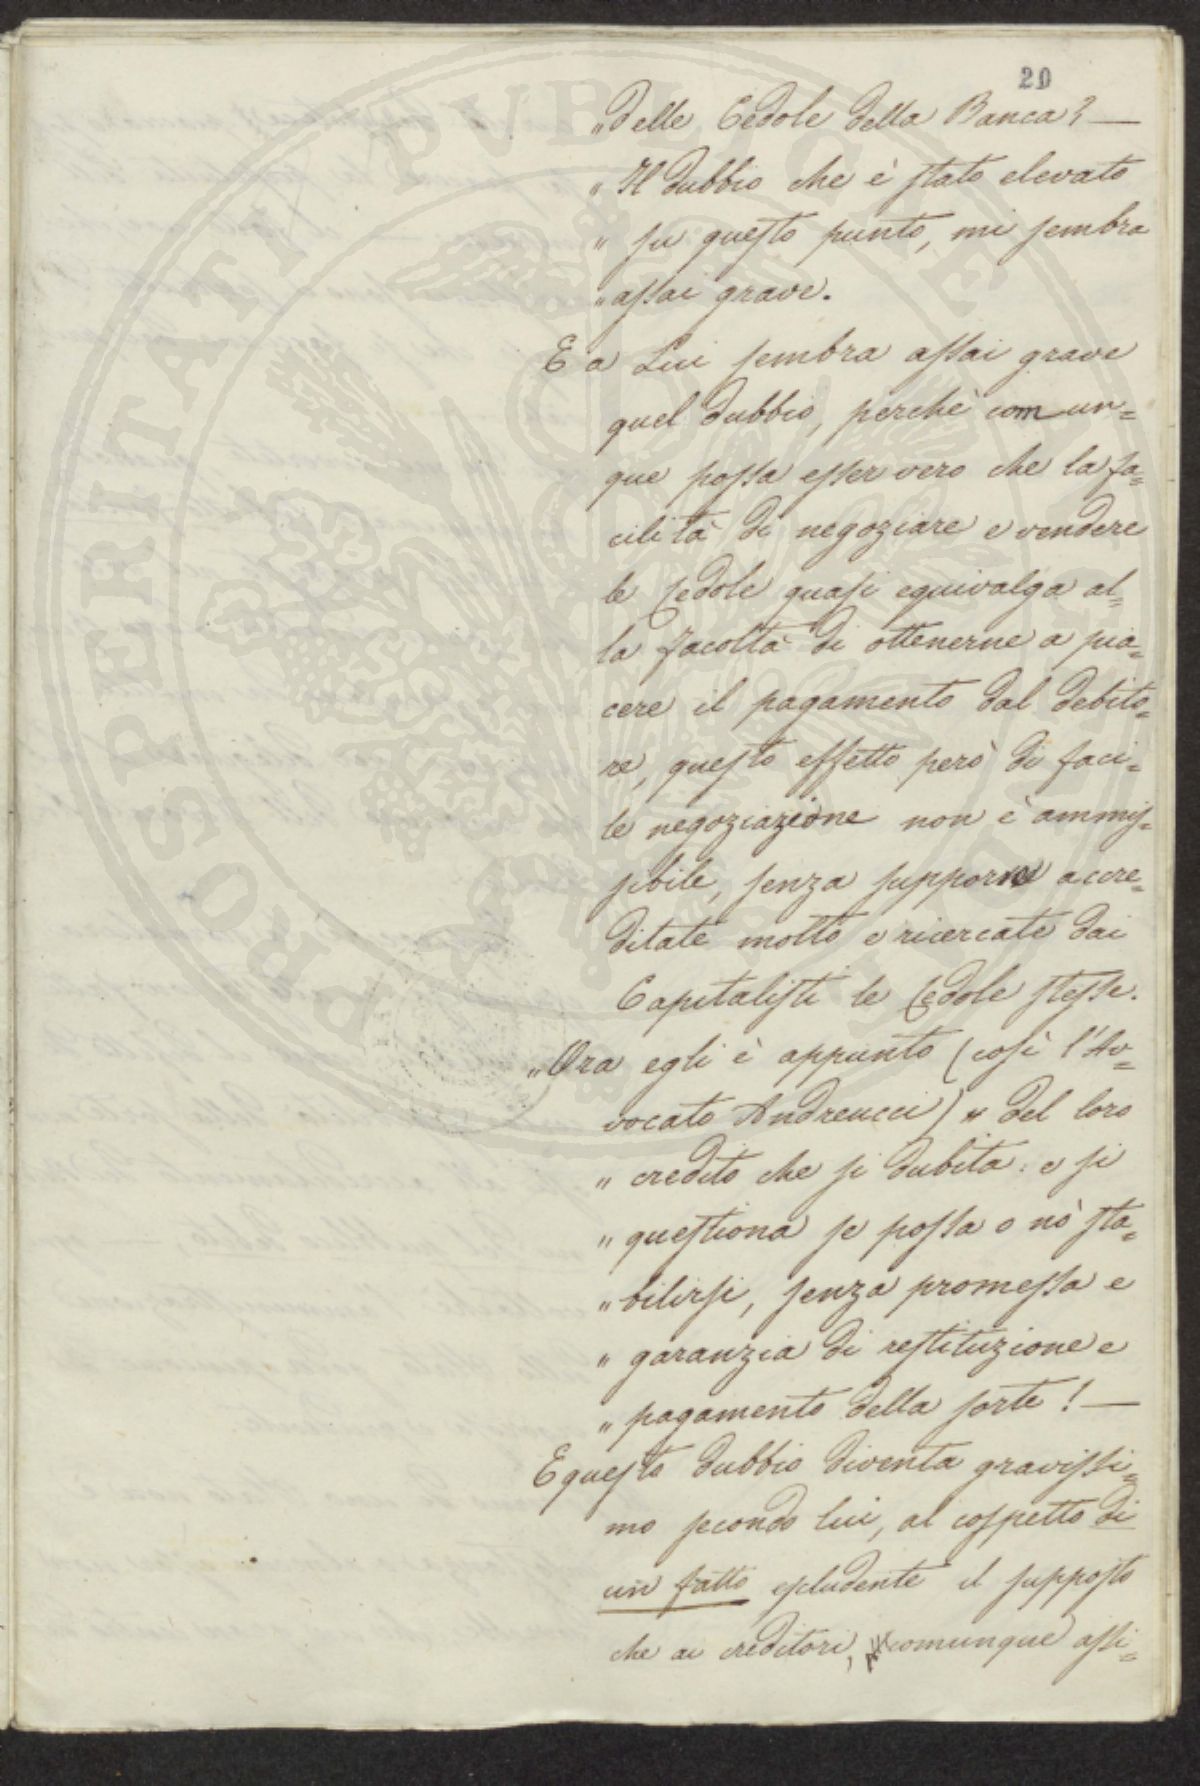 20
„ Delle Cedole della Banca? —
„ Il dubbio che è stato elevato
„ su questo punto, mi sembra
„ assai grave.
E a Lui sembra assai grave
quel dubbio, perchè comun=
que possa esser vero che la fa=
cilità di negoziare e vendere
le Cedole quasi equivalga al=
la facoltà di ottenerne a pia=
cere il pagamento dal debito=
re, questo effetto però di faci=
le negoziazione non è ammis=
sibile, senza supporne accre=
ditate molto e ricercate dai
Capitalisti le Cedole stesse.
„ Ora egli è appunto (così l'Av=
vocato Andreucci) „ del loro
„ credito che si dubita: e si
„ questiona se possa o nò sta=
„ bilirsi, senza promessa e
„ garanzia di restituzione e
„ pagamento della sorte! —
E questo dubbio diventa gravissi=
mo secondo lui, al cospetto di
un fatto escludente il supposto
che ai creditori, comunque assi=
PROSPERITATI PVBLICAE